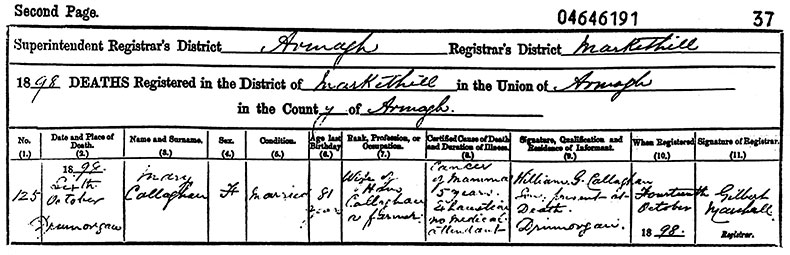 Second Page.
04646191
37
Superintendent Registrar's District Armagh Registrar's District Markethill
1898 DEATHS Registered in the District of Markethill in the Union of Armagh
in the County of Armagh.
No. (1.)
Date and Place of Death. (2.)
Name and Surname. (3.)
Sex. (4.)
Condition. (5.)
Age last Birthday. (6.)
Rank, Profession, or Occupation. (7.)
Certified Cause of Death and Duration of Illness. (8.)
Signature, Qualification and Residence of Informant. (9.)
When Registered. (10.)
Signature of Registrar. (11.)
125
1898.
Sixth
October
Drumorgan
Mary
Callaghan
F
Married
81
years
Wife of
Callaghan
a farmer
Cancer
of Mamma
5 years.
Exhaustion
no medical
attendant
William G. Callaghan
Son, present at
Death.
Drumorgan.
Fourteenth
October
1898.
Gilbert
Marshall
Registrar.